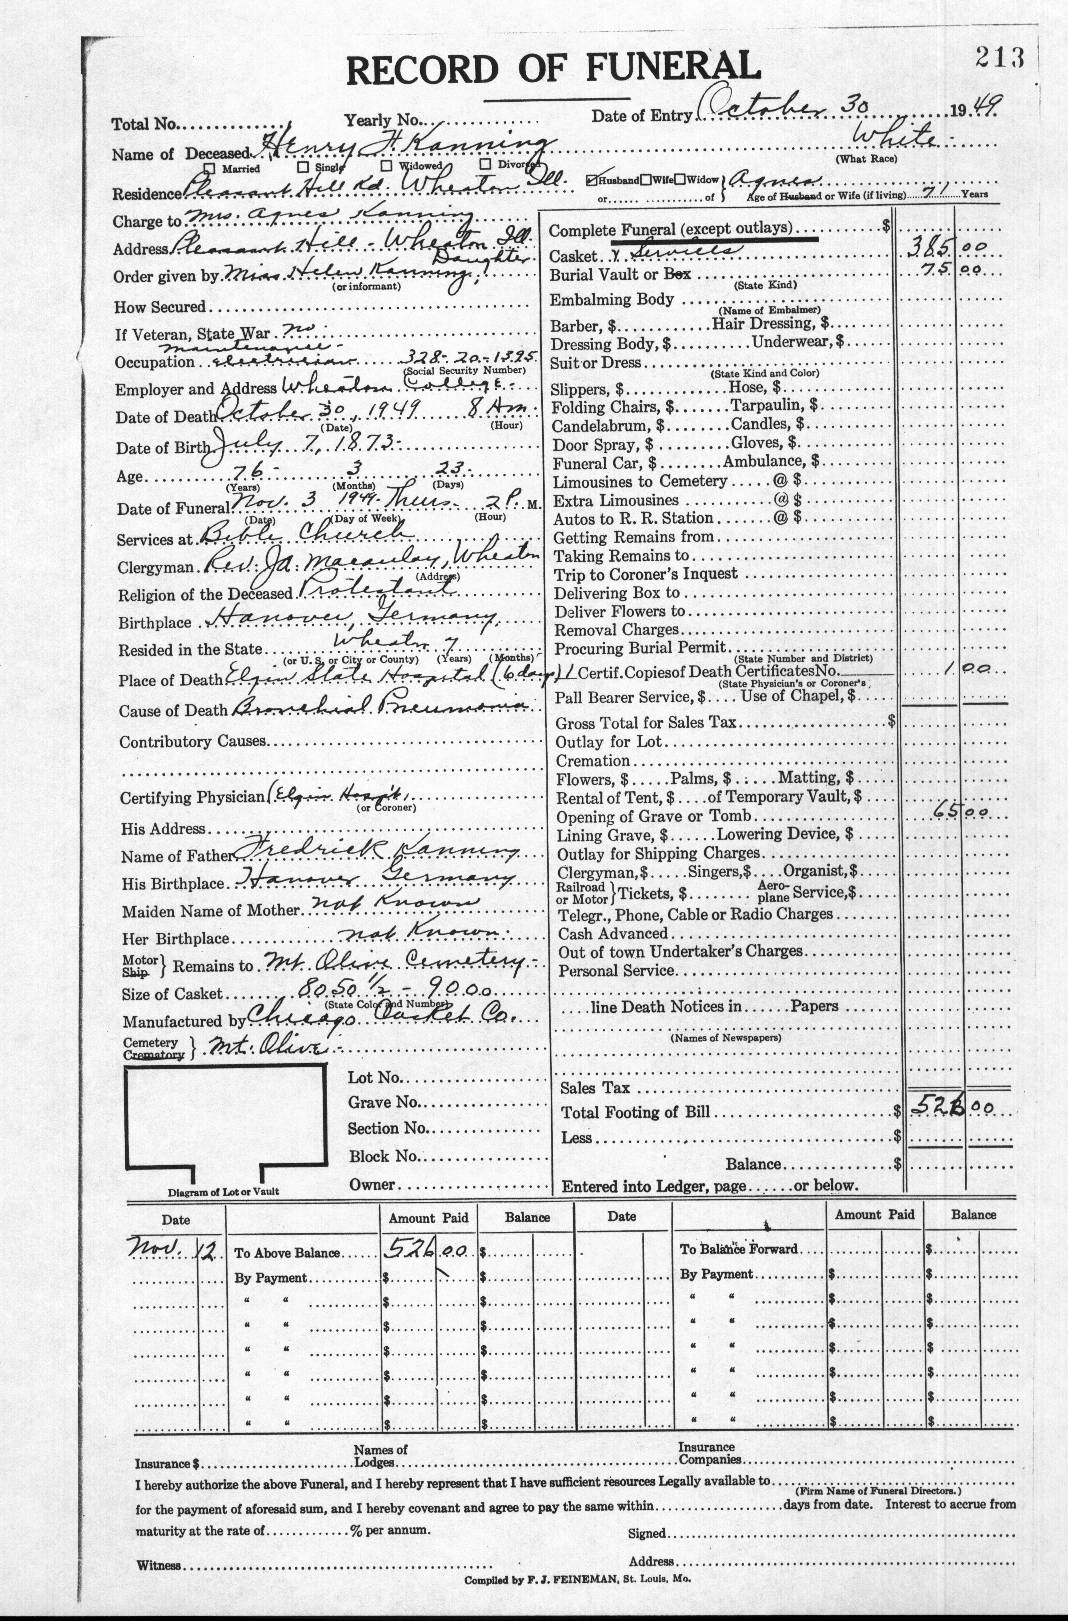 213
RECORD OF FUNERAL
Total No. Yearly No. Date of Entry October 30 1949
Name of Deceased Henry F Kanning White
Married Single Widowed Divorced (What Race)
Residence Pleasant Hill Rd. Wheaton Ill. Husband Wife Widow } Agnes
or of } Age of Husband or Wife (if living) 71 Years
Charge to Mrs. Agnes Kanning
Address Pleasant Hill - Wheaton Ill
Daughter
Order given by Miss Helen Kanning
(or informant)
How Secured
If Veteran, State War no.
maintenance -
Occupation electrician 328-20-1395
(Social Security Number)
Employer and Address Wheaton College -
Date of Death October 30, 1949 8 Am.
(Date) (Hour)
Date of Birth July 7, 1873-
Age 76- 3 23-
(Years) (Months) (Days)
Date of Funeral Nov. 3 1949 Thurs. 2 P. M.
(Date) (Day of Week) (Hour)
Services at Bible Church
Clergyman Rev. Ja. Macaulay, Wheaton
(Address)
Religion of the Deceased Protestant
Birthplace Hanover, Germany
Resided in the State Wheaton 7
(or U. S. or City or County) (Years) (Months)
Place of Death Elgin State Hospital (6 days)
Cause of Death Bronchial Pneumonia
Contributory Causes
Certifying Physician (Elgin Hospt.
(or Coroner)
His Address
Name of Father Fredrick Kanning
His Birthplace Hanover Germany
Maiden Name of Mother not Known
Her Birthplace not Known.
Motor
Ship } Remains to Mt. Olive Cemetery -
Size of Casket 8050 1/2 - 9000
(State Color and Number)
Manufactured by Chicago Casket Co.
Cemetery
Crematory } Mt. Olive -
Lot No.
Grave No.
Section No.
Block No.
Owner
Diagram of Lot or Vault
Complete Funeral (except outlays) $
Casket & Services 385 00
Burial Vault or Box 75 00
(State Kind)
Embalming Body
(Name of Embalmer)
Barber, $ Hair Dressing, $
Dressing Body, $ Underwear, $
Suit or Dress
(State Kind and Color)
Slippers, $ Hose, $
Folding Chairs, $ Tarpaulin, $
Candelabrum, $ Candles, $
Door Spray, $ Gloves, $
Funeral Car, $ Ambulance, $
Limousines to Cemetery @ $
Extra Limousines @ $
Autos to R. R. Station @ $
Getting Remains from
Taking Remains to
Trip to Coroner's Inquest
Delivering Box to
Deliver Flowers to
Removal Charges
Procuring Burial Permit
(State Number and District)
1 Certif. Copies of Death Certificates No. 1 00
(State Physician's or Coroner's
Pall Bearer Service, $ Use of Chapel, $
Gross Total for Sales Tax $
Outlay for Lot
Cremation
Flowers, $ Palms, $ Matting, $
Rental of Tent, $ of Temporary Vault, $
Opening of Grave or Tomb 65 00
Lining Grave, $ Lowering Device, $
Outlay for Shipping Charges
Clergyman, $ Singers, $ Organist, $
Railroad
or Motor } Tickets, $ Aero-plane Service, $
Telegr., Phone, Cable or Radio Charges
Cash Advanced
Out of town Undertaker's Charges
Personal Service
line Death Notices in Papers
(Names of Newspapers)
Sales Tax
Total Footing of Bill $ 526 00
Less $
Balance $
Entered into Ledger, page or below.
Date Amount Paid Balance Date Amount Paid Balance
Nov. 12 To Above Balance 526 00 $ To Balance Forward $
By Payment $ $ By Payment $ $
" " $ $ " " $ $
" " $ $ " " $ $
" " $ $ " " $ $
" " $ $ " " $ $
" " $ $ " " $ $
" " $ $ " " $ $
Insurance $ Names of Lodges Insurance Companies
I hereby authorize the above Funeral, and I hereby represent that I have sufficient resources Legally available to
(Firm Name of Funeral Directors.)
for the payment of aforesaid sum, and I hereby covenant and agree to pay the same within days from date. Interest to accrue from
maturity at the rate of % per annum. Signed
Witness Address
Compiled by F. J. FEINEMAN, St. Louis, Mo.